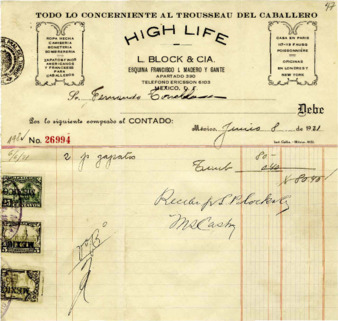 47
TODO LO CONCERNIENTE AL TROUSSEAU DEL CABALLERO
ROPA HECHA
CAMISERIA
BONETERIA
SOMBRERERIA
ZAPATOS FINOS AMERICANOS Y FRANCESES PARA CABALLEROS
HIGH LIFE
L. BLOCK & CIA.
ESQUINA FRANCISCO I. MADERO Y GANTE
APARTADO 290
TELEFONO ERICSSON 6103
MEXICO, D. F.
CASA EN PARIS
17-19 FAUBG POISSONNIERE
OFICINAS EN LONDRES Y NEW YORK
Sr. Fernando
Debe
Por lo siguiente comprado al CONTADO:
México, Junio 8 de 1921
No. 26994
2 p zapatos
80.-
Timb 0.40
$ 80.40
Recibí p L Block y
Vo. Bo.